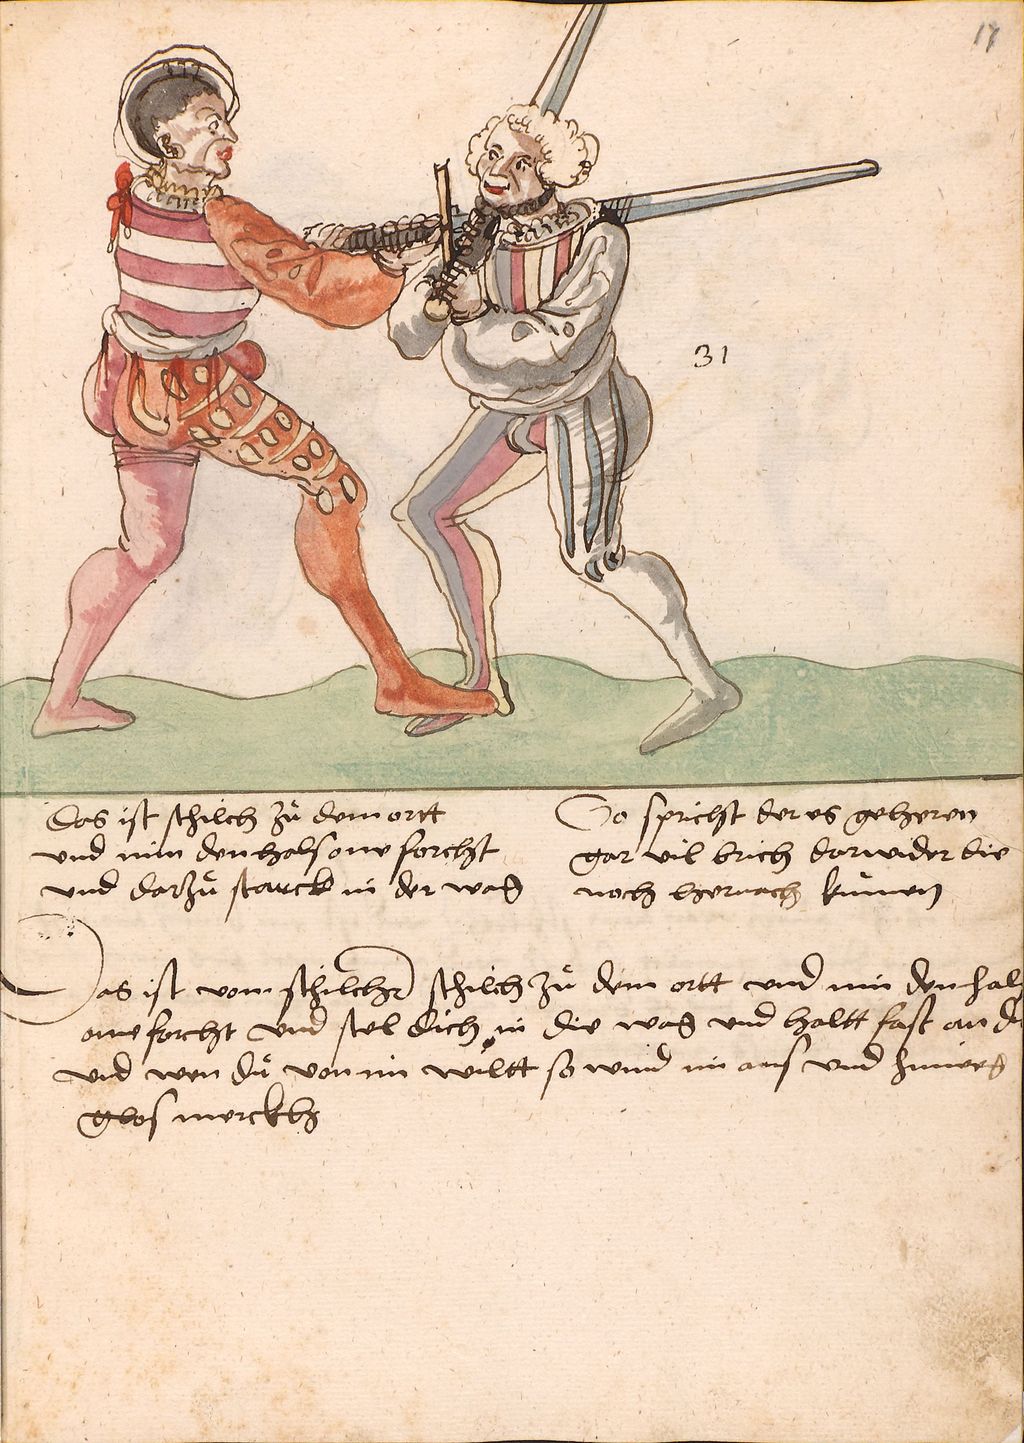 17
31
Das ist schilch zů dem ortt
und nim den hals one forcht
und darzů starck in der wag
So spricht der es geheren
gar vil brich darwider die
noch hernach kumen
Das ist vom schilcher schilch zů dem ortt und nim den hals
one forcht und stel dich in die wag und haltt fast an
und wen dů von im wiltt so wind im aus und hinweg
glos merckh